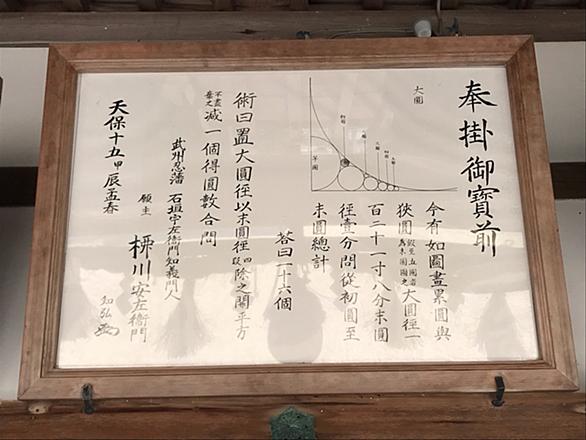 奉掛御寳前
今有如圖畫累圓與
狹圓 假至五圓者為末圓圖之 大圓徑一
百二十一寸八分末圓
徑壹分問從初圓至
末圓總計
大圓
半圓
初圓
答曰一十六個
術曰置大圓徑以末圓徑四段除之開平方
不盡棄之減一個得圓數合問
武州忍藩 石垣宇左衛門知義門人
願主 栁川安左衛門
知弘
天保十五甲辰孟春